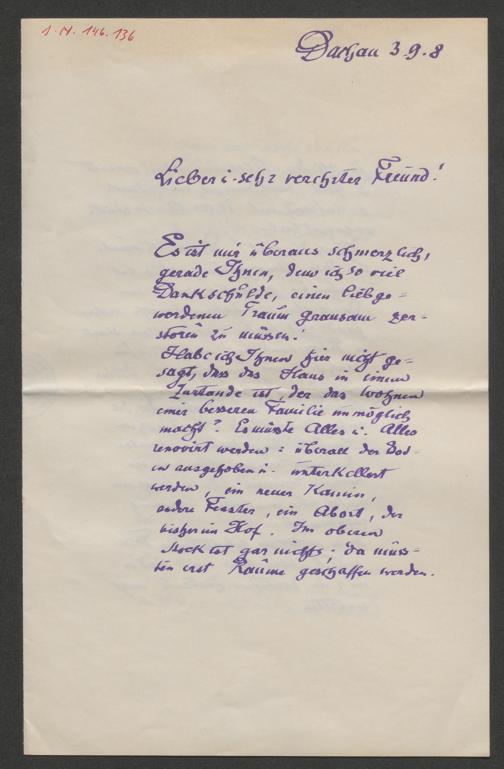 I.N. 146.136
Dachau 3.9.8
Lieber i. sehr verehrter Freund!
Es ist mir überaus schmerzlich,
gerade Ihnen, dem ich so viel
Dank schulde, einen liebge-
wordenen Traum grausam zer-
stören zu müssen!
Habe ich Ihnen hier nicht ge-
sagt, dass das Haus in einem
Zustande ist, der das Wohnen
einer besseren Familie unmöglich
macht? Es müsste Alles i. Alles
renovirt werden: überall der Bod-
en ausgehoben i. unterkellert
werden, ein neuer Kamin,
andere Fenster, ein Abort, der
bisher im Hof. Im oberen
Stock ist gar nichts; da müss-
ten erst Räume geschaffen werden.